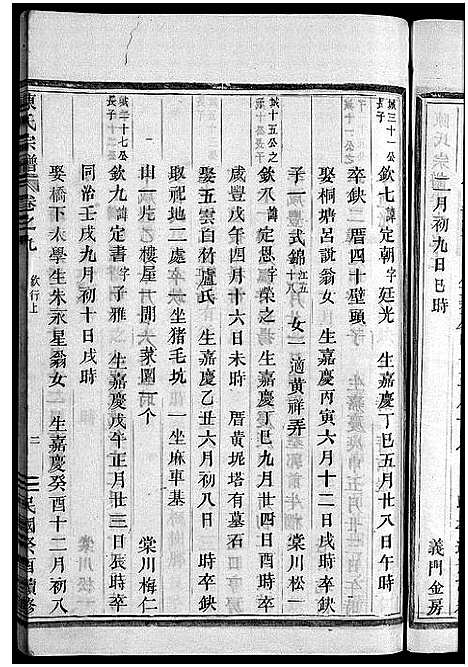 一月初九日巳時
義門金房
城三十一公
城十一公
長子
欽七諱定朝字廷光 生嘉慶丁巳五月廿八日午時
卒缺 二厝四十壁頭
娶桐塘呂說翁女 生嘉慶丙寅六月十二日戌時缺
子一 式錦 江五十八 女一 適黃祥弄 棠川松一
城十五公之
長子
欽八諱定恩字榮之 生嘉慶丁巳九月廿四日酉時卒
咸豐戊午四月十六日未時 厝黃坭塔有墓石
娶五雲白材盧氏 生嘉慶乙丑六月初八日 時卒缺
取祀地二處 一坐猪毛坑 一坐麻車基
山一片 乙樓屋一間 大菜園一个
城二十七公
長子
欽九諱定書字子雅 生嘉慶戊午正月廿三日辰時卒
同治壬戌九月初十日戌時 棠川梅仁
娶橋下太學生朱永星翁女 生嘉慶癸酉十二月初八
陳氏宗譜 卷之九 欽行上 二 民國癸酉續修